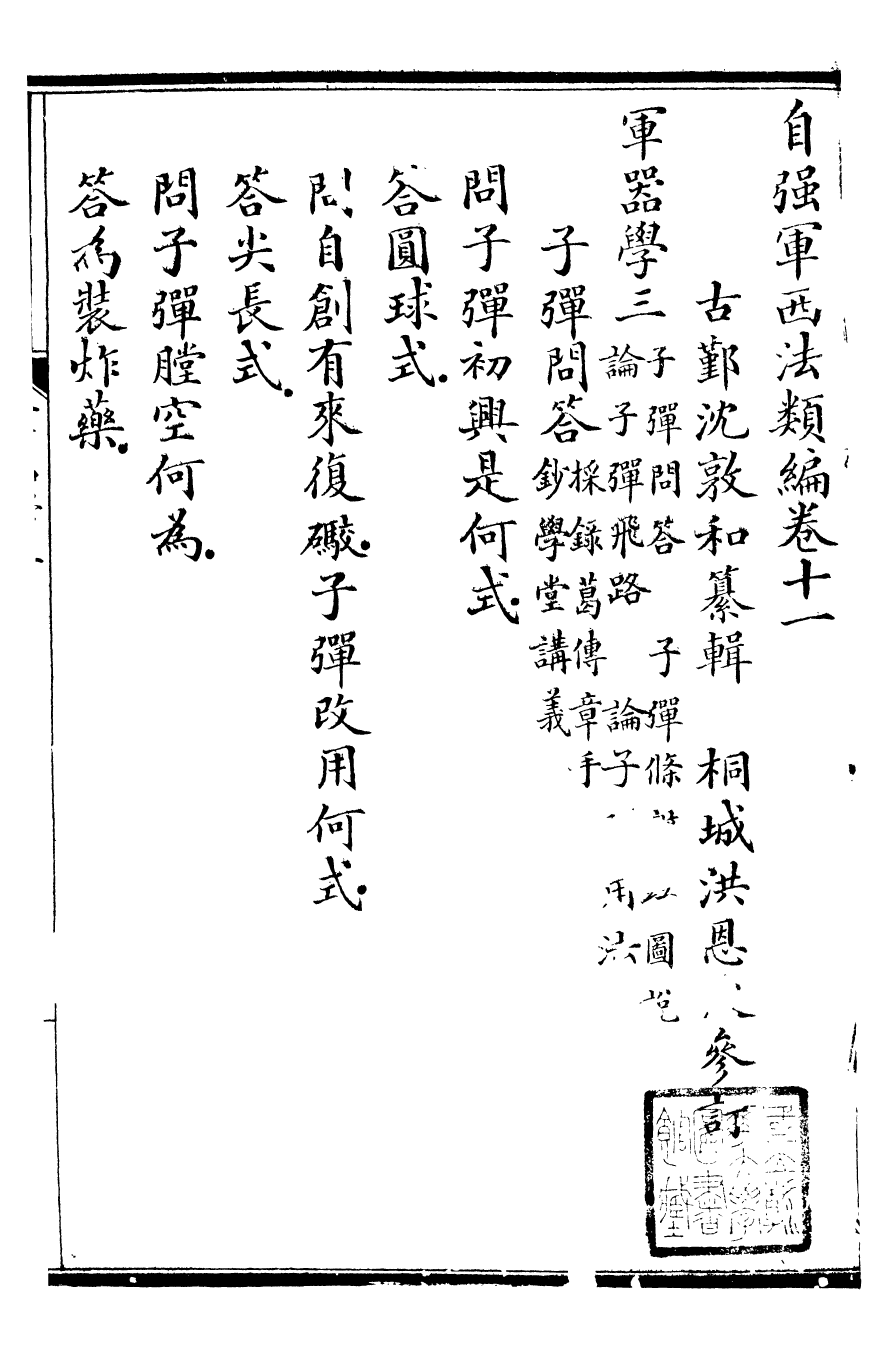 自强軍西法類編卷十一
古鄞沈敦和纂輯　桐城洪恩　參訂
軍器學三　子彈問答　子彈條　圖說
論子彈飛路　論子　用法
子彈問答　採錄葛傳章手
鈔學堂講義
問子彈初興是何式.
答圓球式.
問自創有來復礮.子彈改用何式.
答尖長式.
問子彈膛空何為.
答為裝炸藥.